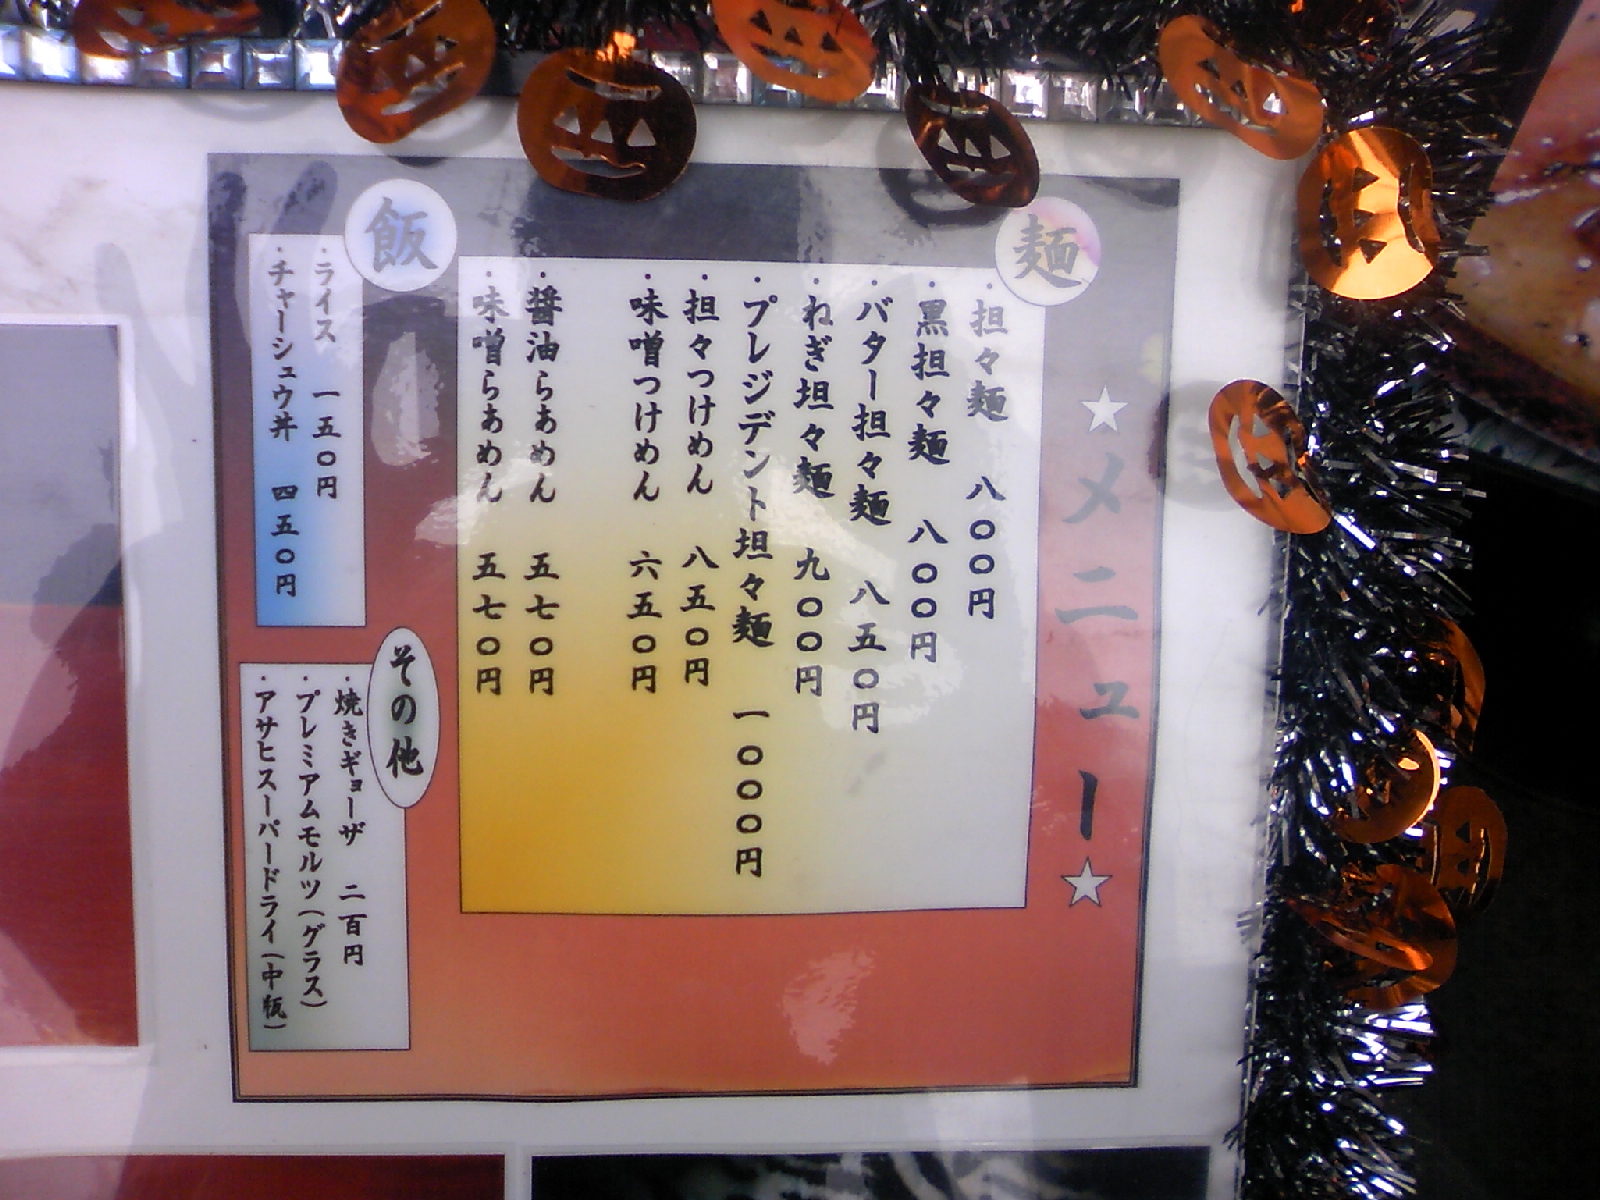 ★メニュー★
麺
・担々麺 八〇〇円
・黒担々麺 八〇〇円
・バター担々麺 八五〇円
・ねぎ坦々麺 九〇〇円
・プレジデント坦々麺 一〇〇〇円
・担々つけめん 八五〇円
・味噌つけめん 六五〇円
・醤油らぁめん 五七〇円
・味噌らぁめん 五七〇円
飯
・ライス 一五〇円
・チャーシュウ丼 四五〇円
その他
・焼きギョーザ 二百円
・プレミアムモルツ(グラス)
・アサヒスーパードライ(中瓶)